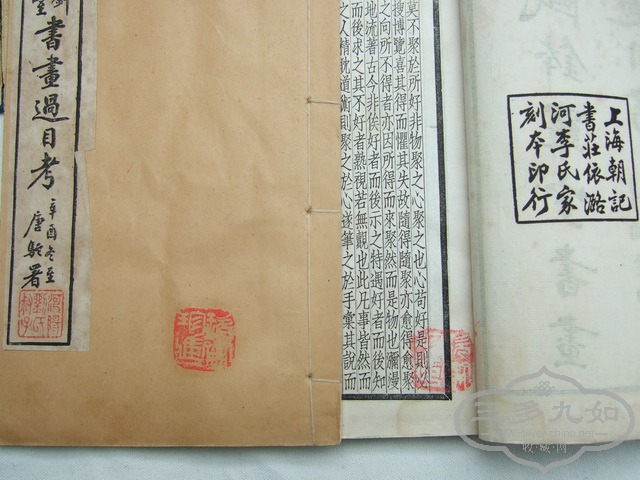 上海朝記
書莊依潞
河李氏家
刻本印行
莫不聚於所好非物聚之心聚之也心苟好是則必
搜博覽喜其得而懼其失故隨得隨聚亦愈得愈聚
之向所不得者亦因所得而來聚然而是物也瀰漫
地流著古今非俟好者而後示之特遇好者而後知
而後求之其不好者熟視若無覩也此凡事皆然而
則聚之於心遂筆之於手彙其說而
書畫過目考
辛酉冬至
唐駝署
三多九如